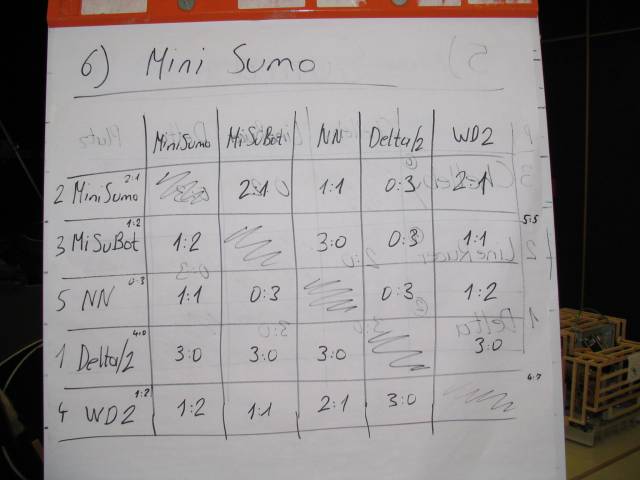 6) Mini Sumo
MiniSumo MiSuBot NN Delta/2 WD2
2 MiniSumo 2:1 2:1 1:1 0:3 2:1
3 MiSuBot 1:2 1:2 3:0 0:3 1:1 5:5
5 NN 0:3 1:1 0:3 0:3 1:2
1 Delta/2 4:0 3:0 3:0 3:0 3:0
4 WD2 1:2 1:2 1:1 2:1 3:0